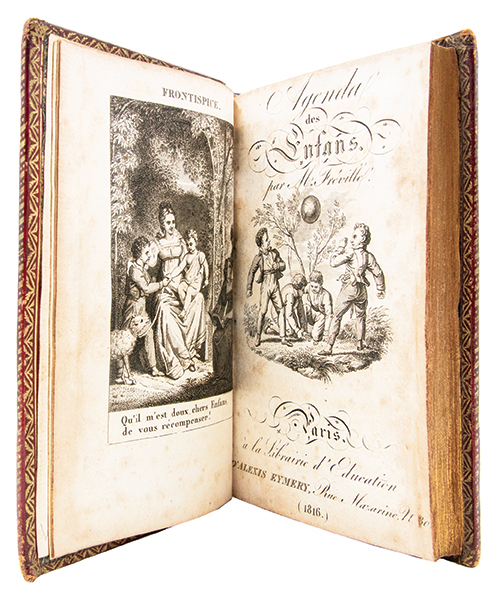 FRONTISPICE.
Qu'il m'est doux, chers Enfans,
de vous récompenser!
Agenda
des
Enfans,
par Mr. Fréville.
Paris,
à la Librairie d'Education
D'ALEXIS EYMERY, Rue Mazarine, No. 30
(1816.)